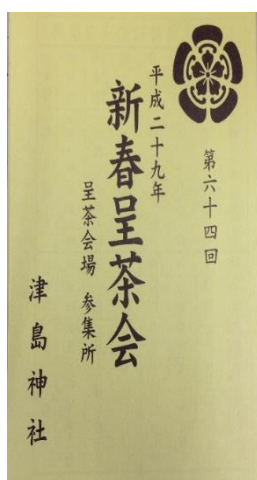 第六十四回
平成二十九年
新春呈茶会
呈茶会場 参集所
津島神社